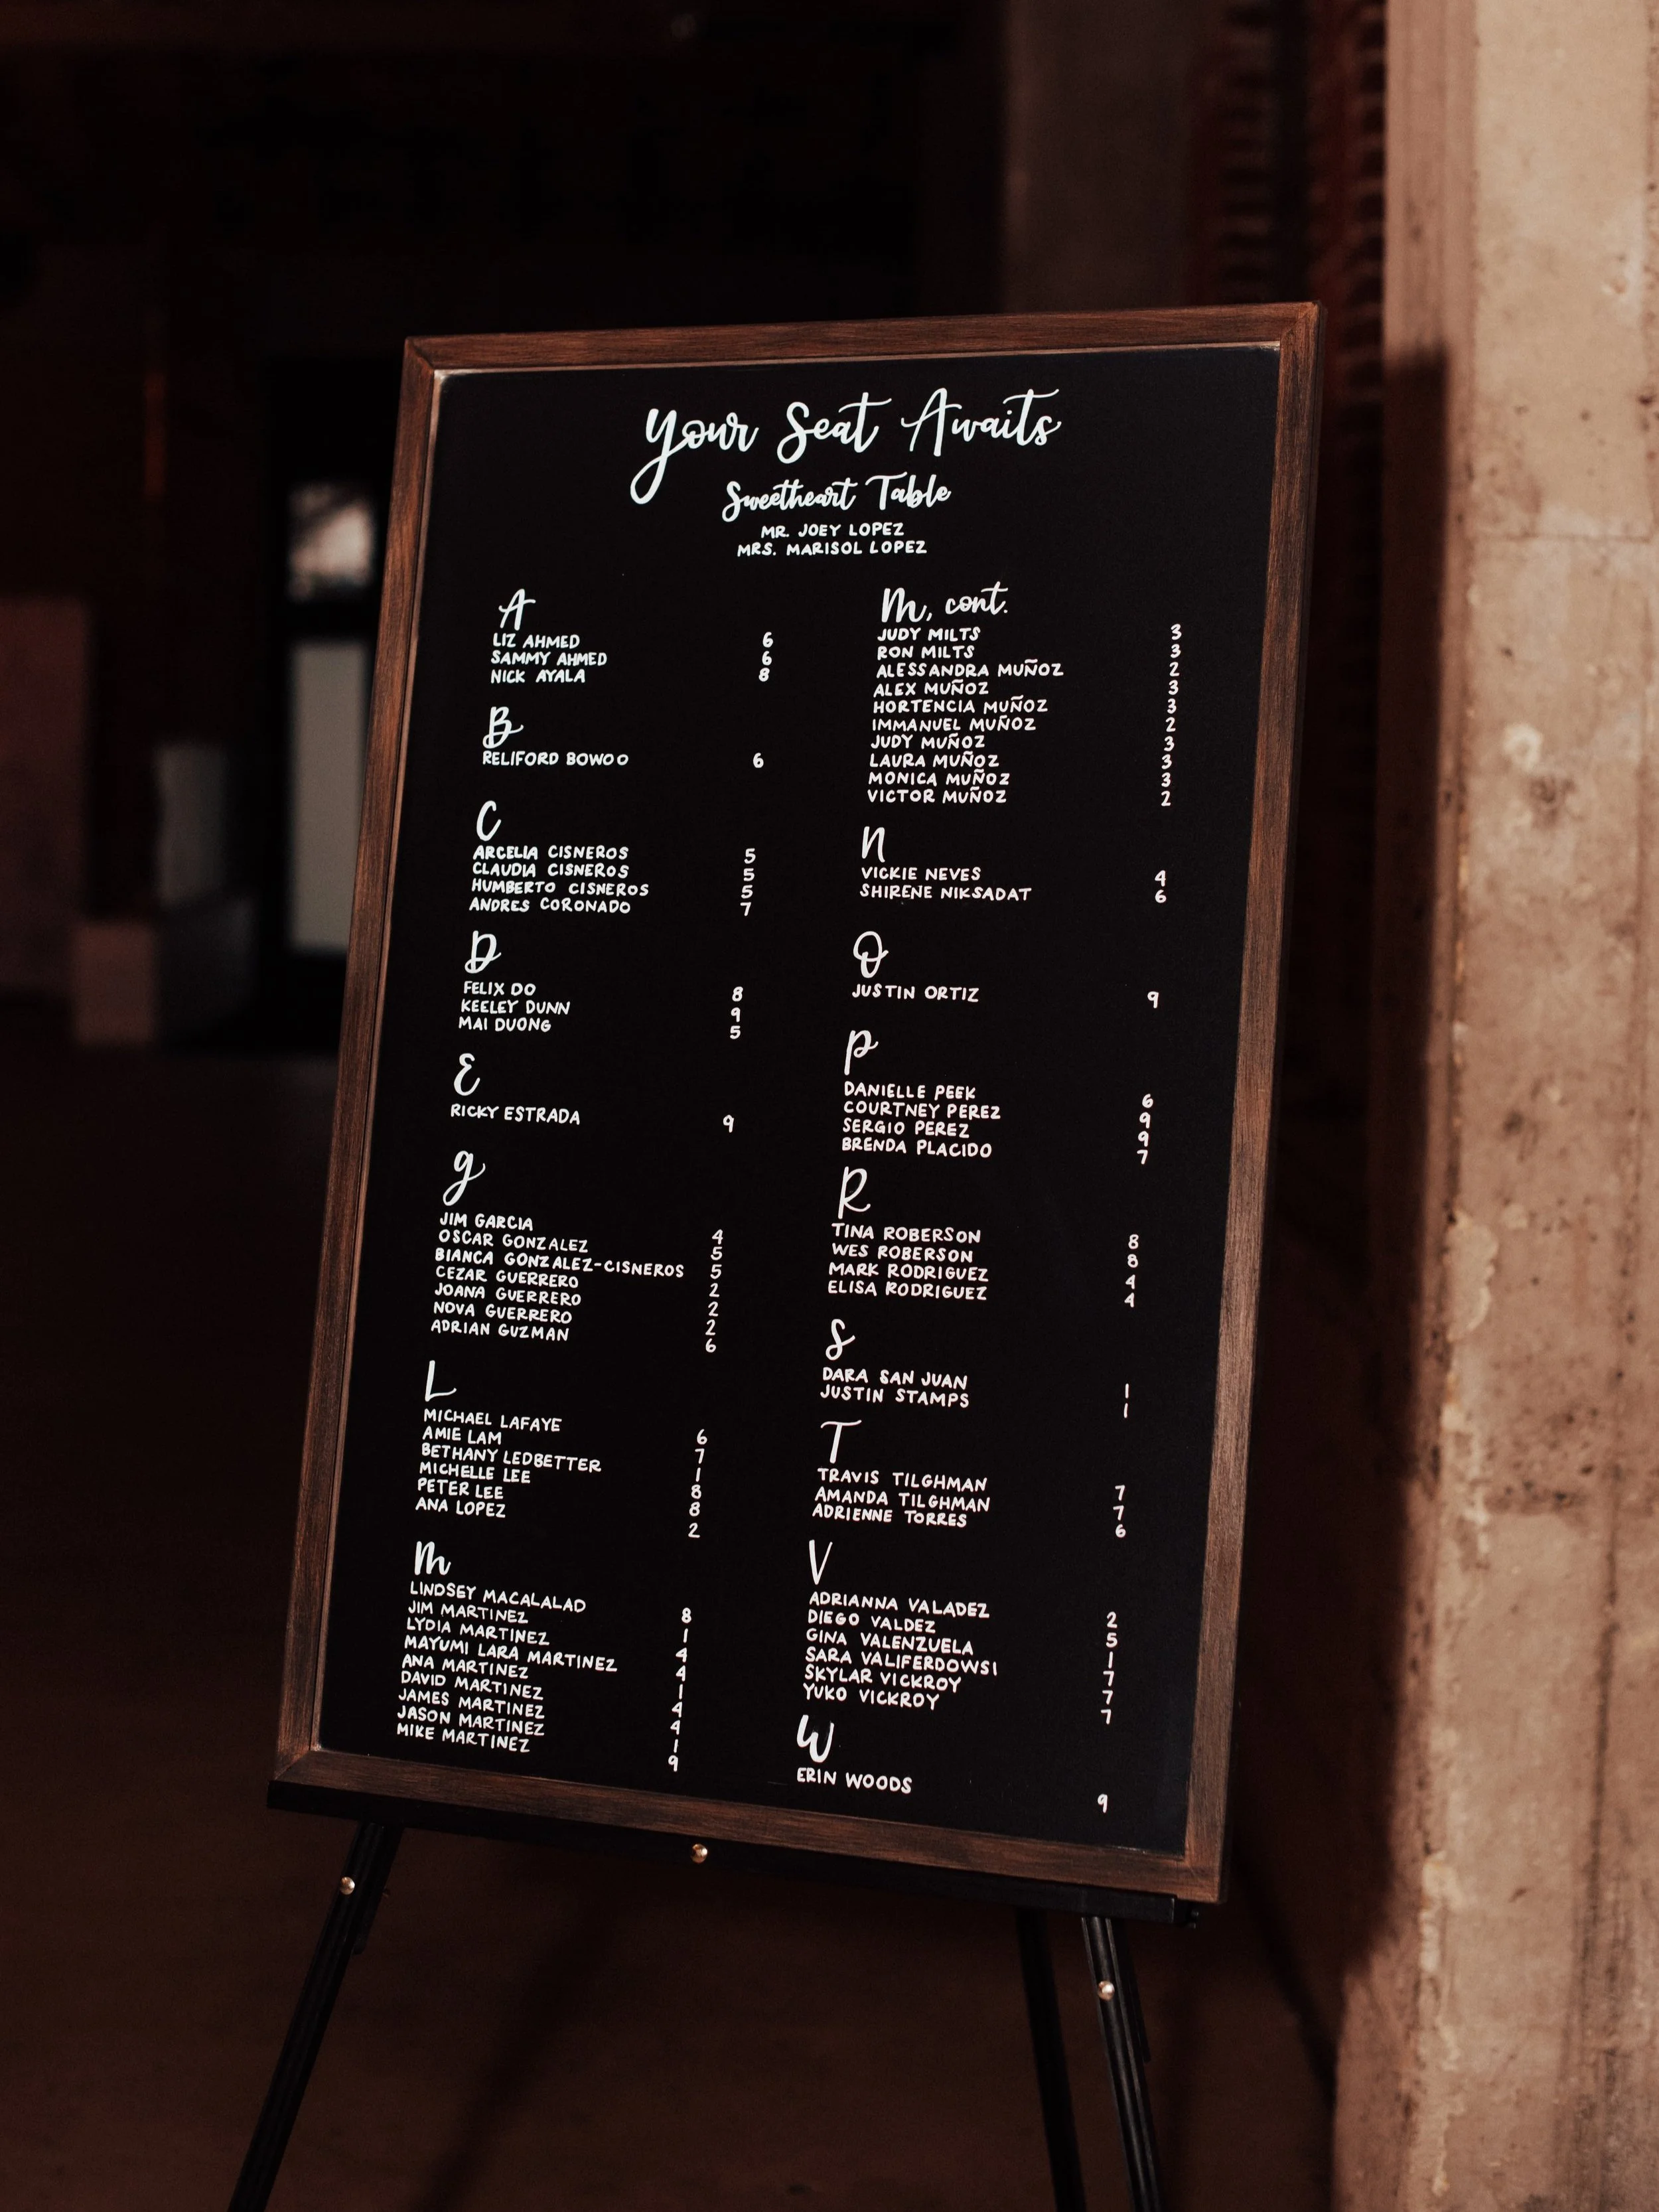 Your Seat Awaits
Sweetheart Table
MR. JOEY LOPEZ
MRS. MARISOL LOPEZ
A
LIZ AHMED 6
SAMMY AHMED 6
NICK AYALA 8
B
RELIFORD BOWOO 6
C
ARCELIA CISNEROS 5
CLAUDIA CISNEROS 5
HUMBERTO CISNEROS 5
ANDRES CORONADO 7
D
FELIX DO 8
KEELEY DUNN 9
MAI DUONG 5
E
RICKY ESTRADA 9
g
JIM GARCIA 4
OSCAR GONZALEZ 5
BIANCA GONZALEZ-CISNEROS 5
CEZAR GUERRERO 2
JOANA GUERRERO 2
NOVA GUERRERO 2
ADRIAN GUZMAN 6
L
MICHAEL LAFAYE 6
AMIE LAM 7
BETHANY LEDBETTER 1
MICHELLE LEE 8
PETER LEE 8
ANA LOPEZ 2
M
LINDSEY MACALALAD 8
JIM MARTINEZ 1
LYDIA MARTINEZ 4
MAYUMI LARA MARTINEZ 4
ANA MARTINEZ 1
DAVID MARTINEZ 4
JAMES MARTINEZ 4
JASON MARTINEZ 1
MIKE MARTINEZ 9
M, cont.
JUDY MILTS 3
RON MILTS 3
ALESSANDRA MUÑOZ 2
ALEX MUÑOZ 3
HORTENCIA MUÑOZ 3
IMMANUEL MUÑOZ 2
JUDY MUÑOZ 3
LAURA MUÑOZ 3
MONICA MUÑOZ 3
VICTOR MUÑOZ 2
N
VICKIE NEVES 4
SHIRENE NIKSADAT 6
O
JUSTIN ORTIZ 9
P
DANIELLE PEEK 6
COURTNEY PEREZ 9
SERGIO PEREZ 9
BRENDA PLACIDO 7
R
TINA ROBERSON 8
WES ROBERSON 8
MARK RODRIGUEZ 4
ELISA RODRIGUEZ 4
S
DARA SAN JUAN 1
JUSTIN STAMPS 1
T
TRAVIS TILGHMAN 7
AMANDA TILGHMAN 7
ADRIENNE TORRES 6
V
ADRIANNA VALADEZ 2
DIEGO VALDEZ 5
GINA VALENZUELA 1
SARA VALIFERDOWSI 7
SKYLAR VICKROY 7
YUKO VICKROY 7
W
ERIN WOODS 9